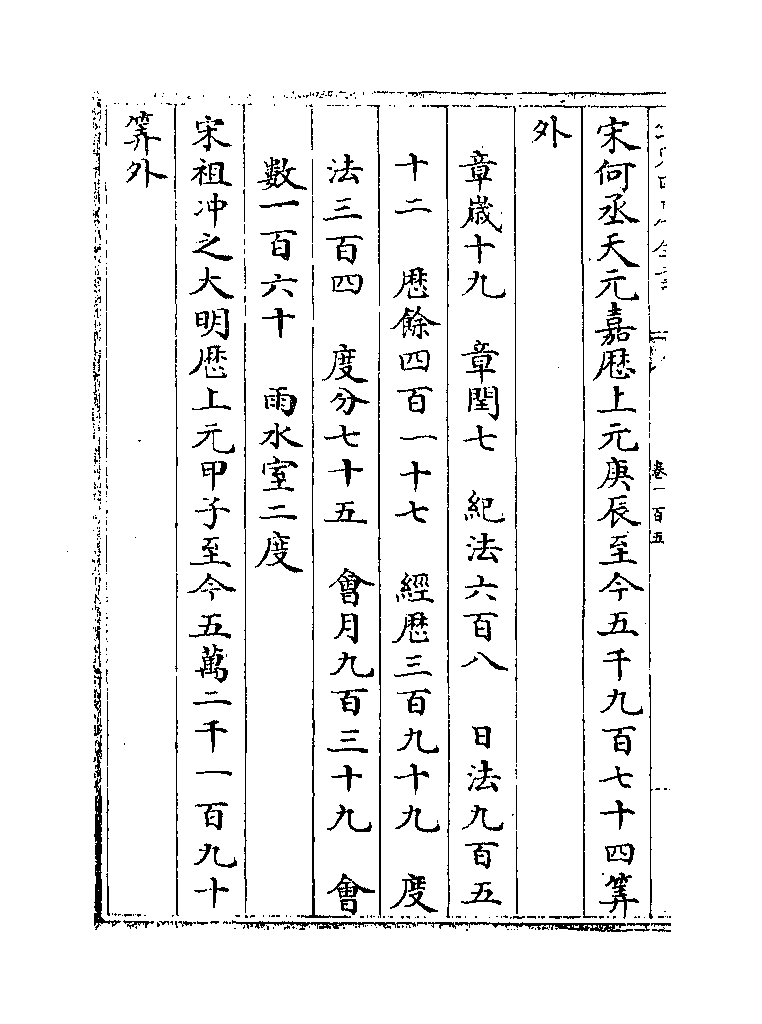 卷一百五
宋何丞天元嘉厯上元庚辰至今五千九百七十四筭
外
章歳十九　章閏七　紀法六百八　日法九百五
十二　厯餘四百一十七　經厯三百九十九　度
法三百四　度分七十五　會月九百三十九　會
數一百六十　雨水室二度
宋祖冲之大明厯上元甲子至今五萬二千一百九十
筭外